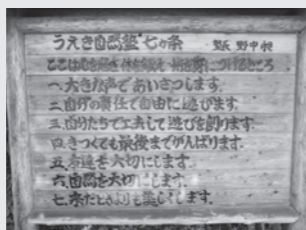 うえき自然塾 七ヶ条 塾長 野中
ここは
一.大きな声であいさつします。
二.自分の責任で自由に遊びます。
三.自分たちで工夫して遊びを創ります。
四.きつくても最後までがんばります。
五.友達を大切にします。
六.自然を大切にします。
七.来たときよりも美しくします。